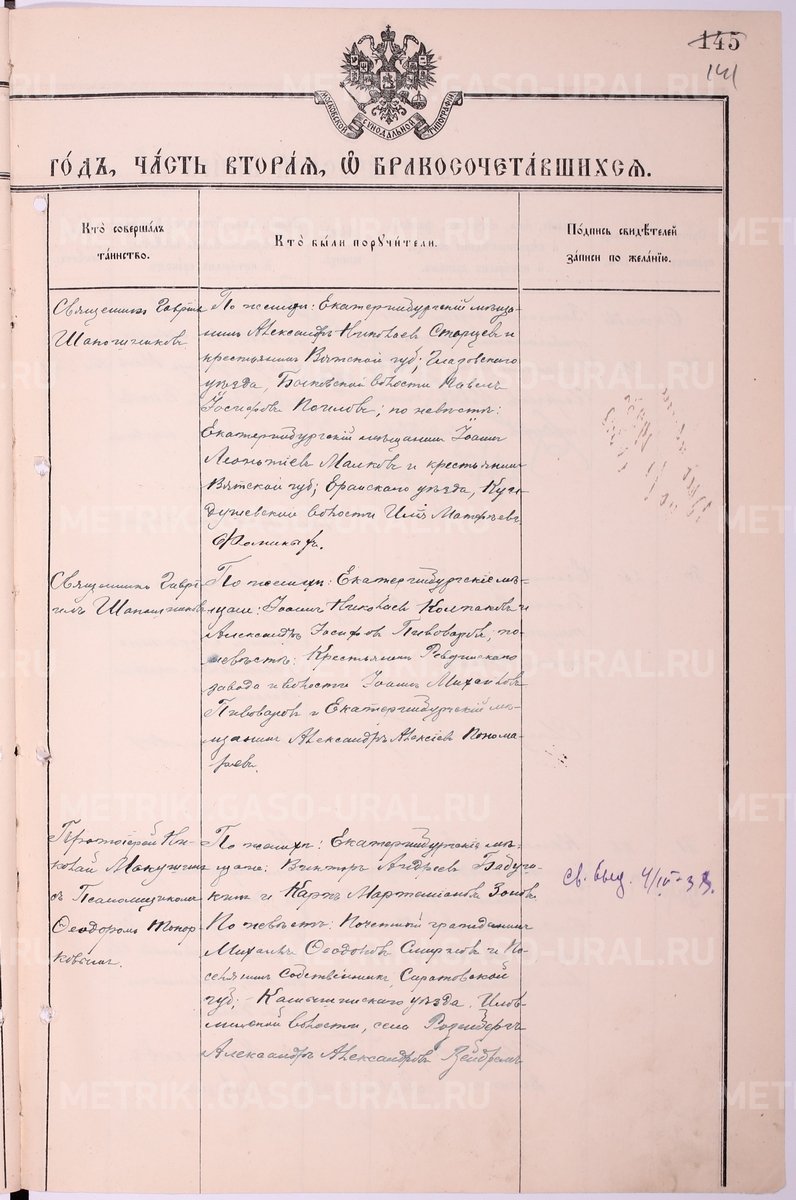 145
141
МОСКОВСКОЙ СУНОДАЛЬНОЙ ТИПОГРАФІИ
ГО́ДЪ, ЧА́СТЬ ВТОРА́Я, Ѡ БРАКОСОЧЕТА́ВШИХСЯ.
Кто̀ соверша́лъ
та́инство.
Кто̀ бы́ли порꙋчи́тели.
По́дпись свидѣ́телей
за́писи по жела́нїю.
Священникъ Гавріилъ
Шапошниковъ
По женихѣ: Екатеринбургскій мѣща-
нинъ Александръ Николаевъ Старцев и
крестьянинъ Вятской губ; Глазовскаго
уѣзда, волости Павелъ
Іосифовъ; по невѣстѣ:
Екатеринбургскій мѣщанинъ Іоаннъ
Леонтіевъ Малковъ и крестьянинъ
Вятской губ; Еранскаго уѣзда,
волости Илія Матѳеевъ
Фоминыхъ.
Священникъ Гаврі-
илъ Шапошниковъ
По женихѣ: Екатеринбургскіе мѣ-
щане: Іоаннъ Николаевъ Колпаковъ и
Александръ Іосифовъ Пивоваровъ; по
невѣстѣ: Крестьянинъ Ревдинскаго
завода и волости Іоаннъ Михаиловъ
Пивоваровъ и Екатеринбургскій мѣ-
щанинъ Александръ Алексѣевъ Понома-
ревъ.
Протоіерей Ни-
колай Макушинъ
съ Псаломщикомъ
Ѳеодоромъ Топор-
ковымъ.
По женихѣ: Екатеринбургскіе мѣ-
щане: Викторъ Андреевъ
и Карпъ Мартеміановъ Зоновъ.
По невѣстѣ: Почетный гражданинъ
Михаилъ Ѳеодоровъ Смирновъ и По-
селянинъ собственникъ, Саратовской
губ; Камышинскаго уѣзда, Илов-
линской волости, села Розенбергъ
Александръ Александровъ
св. выд. 4/IV-33.
METRIKI.GASO-URAL.RU